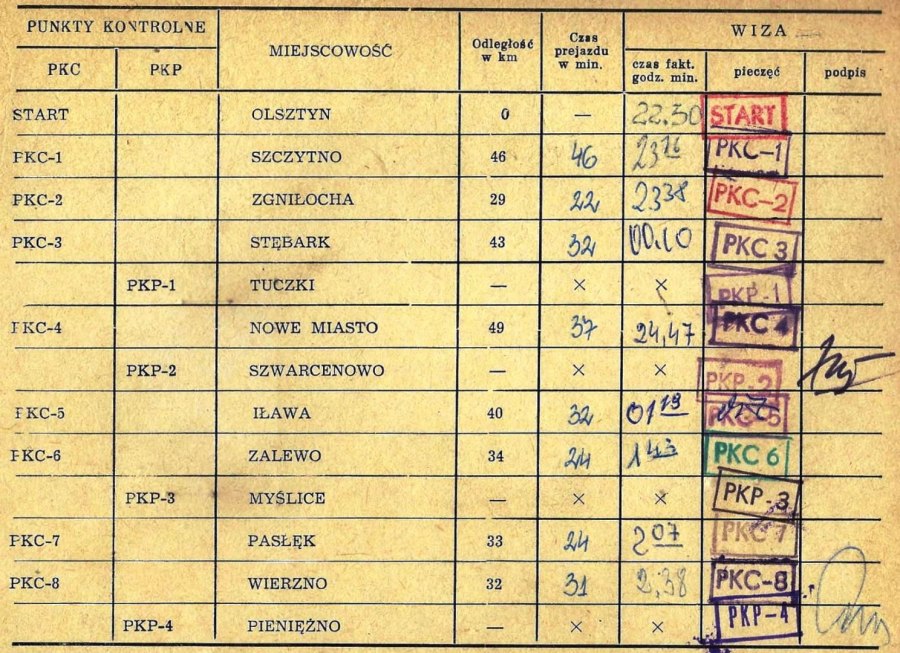 PUNKTY KONTROLNE MIEJSCOWOŚĆ Odległość w km Czas prejazdu w min. WIZA
PKC PKP czas fakt. godz. min. pieczęć podpis
START OLSZTYN 0 — 22.30 START
PKC-1 SZCZYTNO 46 46 23 16 PKC-1
PKC-2 ZGNIŁOCHA 29 22 23 38 PKC-2
PKC-3 STĘBARK 43 32 00.10 PKC 3
PKP-1 TUCZKI — × × PKP-1
PKC-4 NOWE MIASTO 49 37 24,47 PKC 4
PKP-2 SZWARCENOWO — × × PKP-2
PKC-5 IŁAWA 40 32 01 19 PKC-5
PKC-6 ZALEWO 34 24 1 43 PKC 6
PKP-3 MYŚLICE — × × PKP-3
PKC-7 PASŁĘK 33 24 2 07 PKC 7
PKC-8 WIERZNO 32 31 2.38 PKC-8
PKP-4 PIENIĘŻNO — × × PKP-4